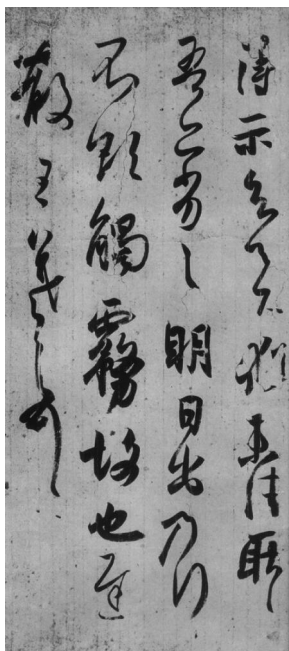 得示知足下猶未佳耿
吾亦劣劣明日出乃行
不欲觸霧故也遲
散王羲之頓